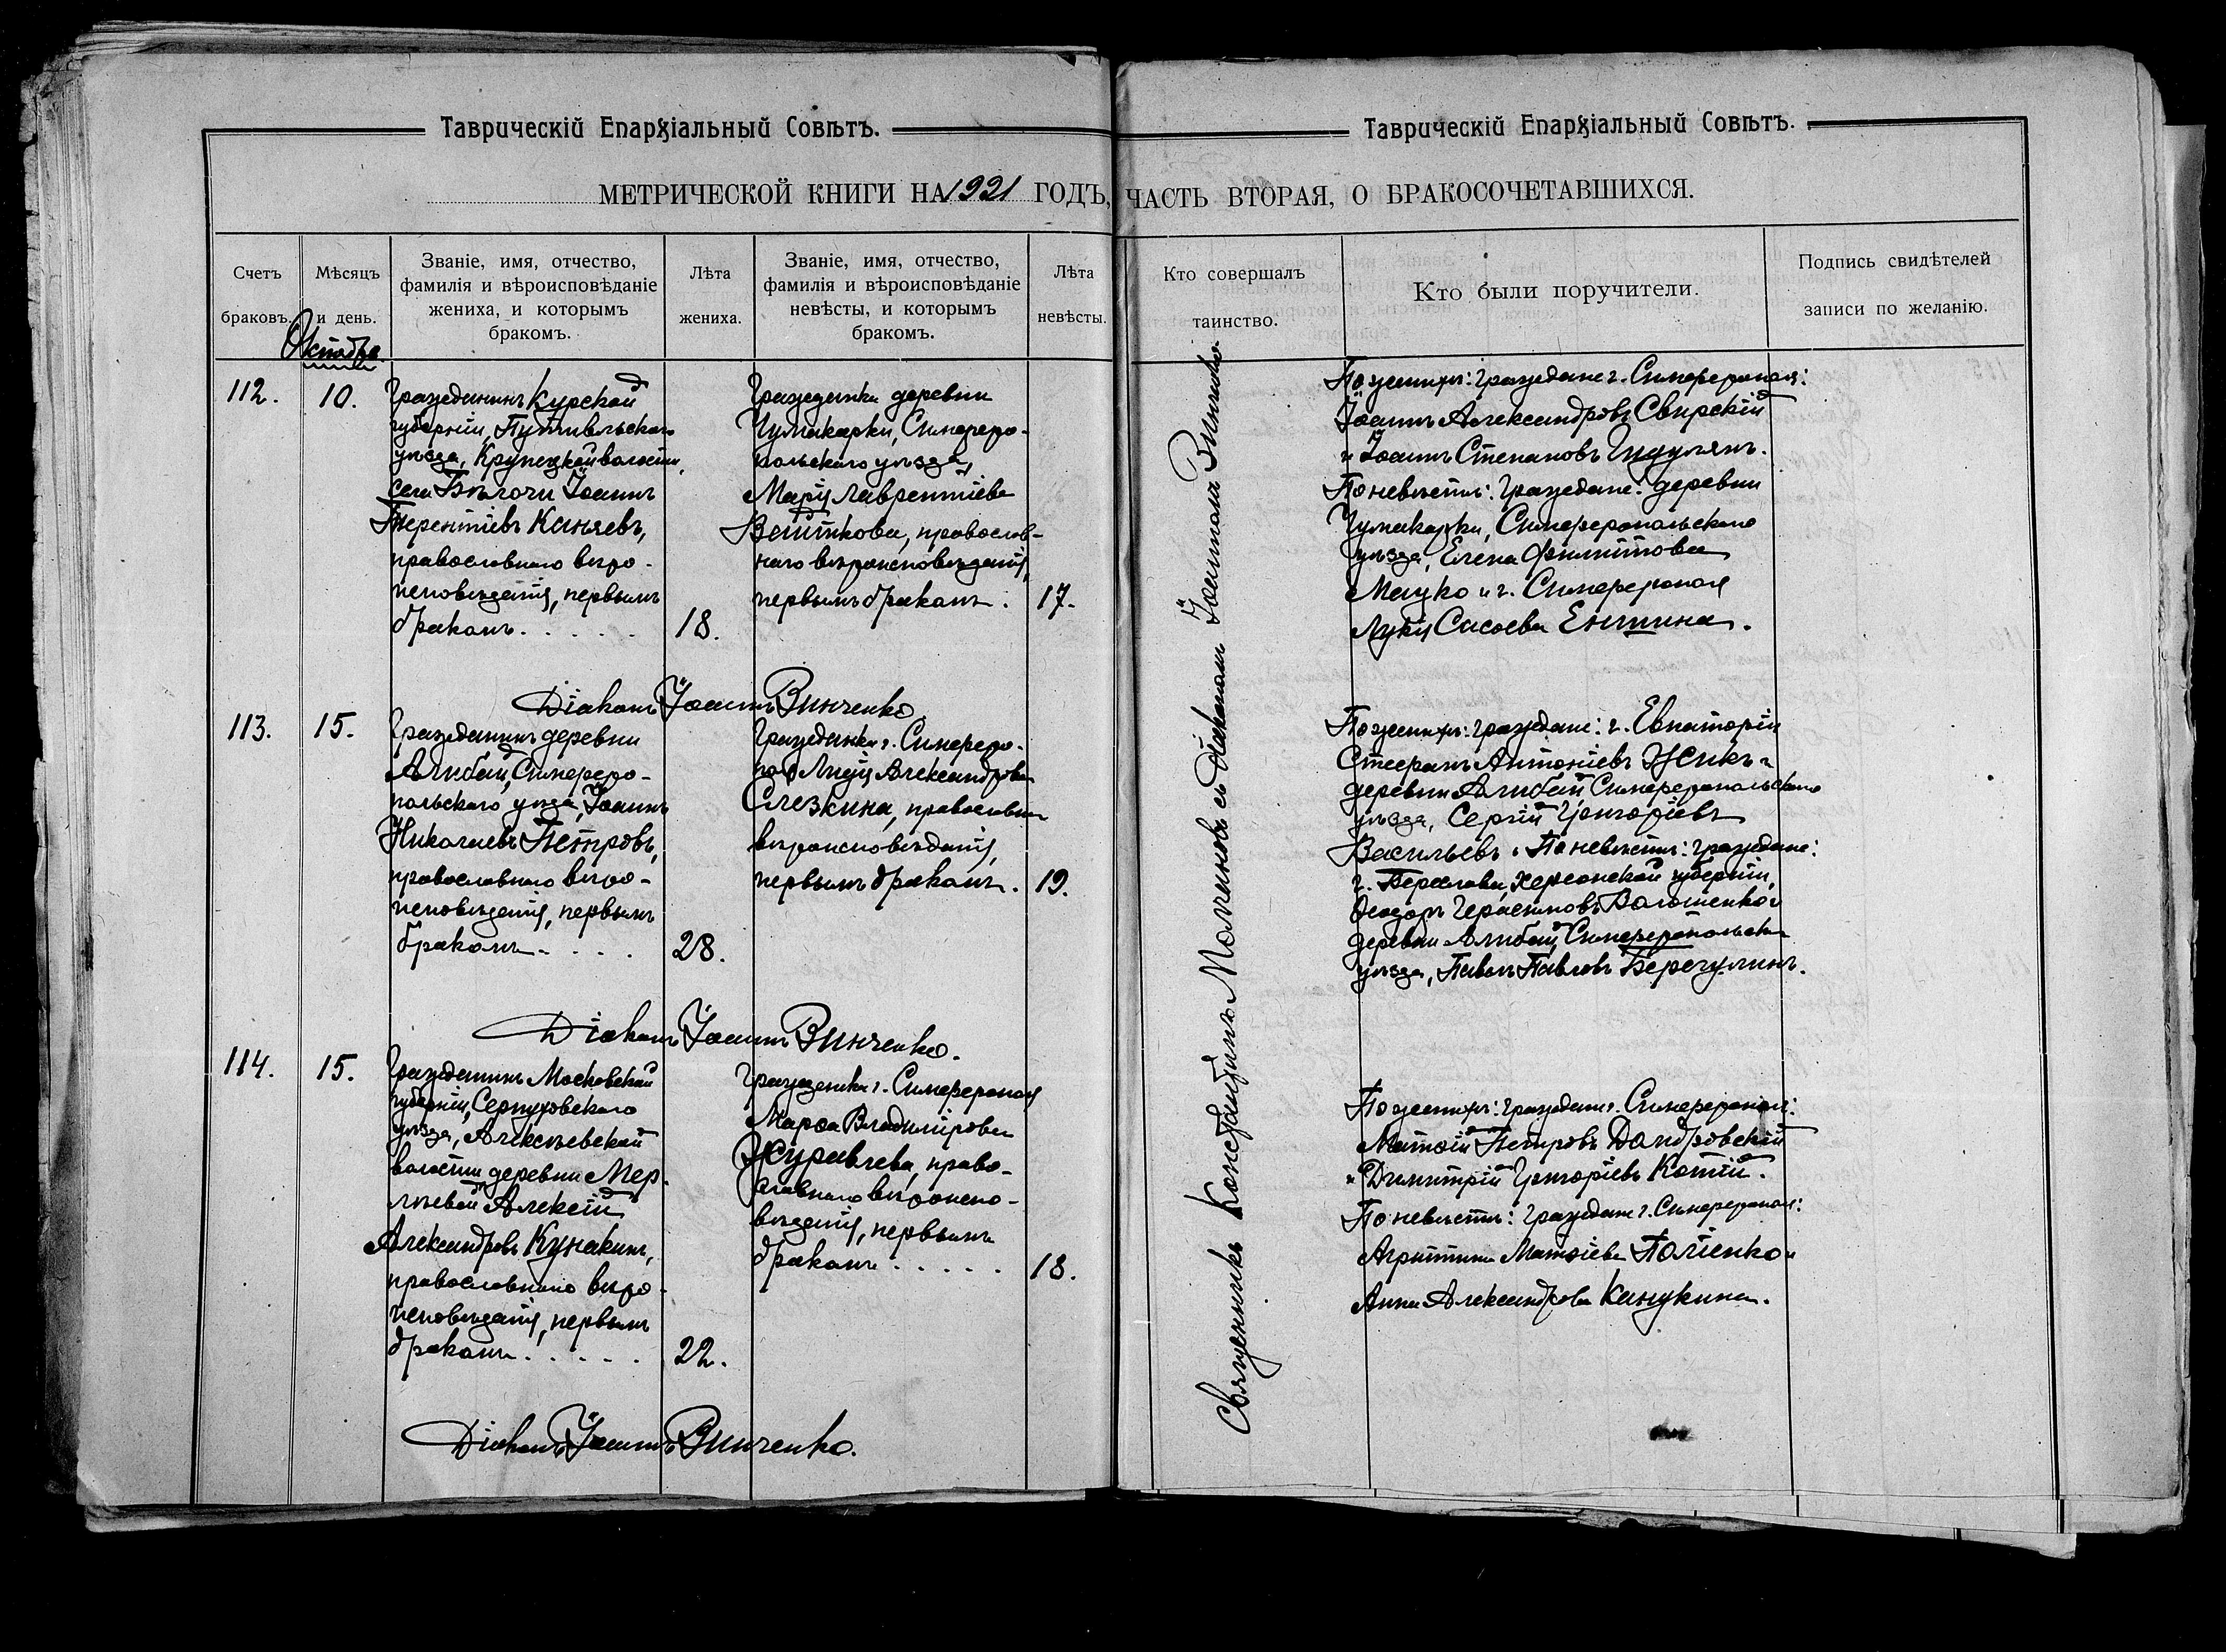 Таврическій Епархіальный Совѣтъ.
МЕТРИЧЕСКОЙ КНИГИ НА 1921 ГОДЪ,
Счетъ
браковъ.
Мѣсяцъ
и день.
Званіе, имя, отчество,
фамилія и вѣроисповѣданіе
жениха, и которымъ
бракомъ.
Лѣта
жениха.
Званіе, имя, отчество,
фамилія и вѣроисповѣданіе
невѣсты, и которымъ
бракомъ.
Лѣта
невѣсты.
Октябрь
112.
10.
Гражданинъ Курской
губерніи, Путивльскаго
уѣзда, Крупецкой волости,
села Бѣлочи Іоаннъ
Терентіевъ Каняевъ,
православнаго вѣро-
исповѣданія, первымъ
бракомъ. . . . . .
18.
Гражданка деревни
Чумакарки, Симферо-
польскаго уѣзда,
Марія Лаврентіева
Вѣтткова, православ-
наго вѣроисповѣданія,
первымъ бракомъ.
17.
Діаконъ Іоаннъ Винченко
113.
15.
Гражданинъ деревни
Алибай, Симферо-
польскаго уѣзда, Іоаннъ
Николаевъ Петровъ,
православнаго вѣро-
исповѣданія, первымъ
бракомъ. . . . .
28.
Гражданка г. Симферо-
поля Лидія Александрова
Слезкина, православнаго
вѣроисповѣданія,
первымъ бракомъ.
19.
Діаконъ Іоаннъ Винченко.
114.
15.
Гражданинъ Московской
губерніи, Серпуховскаго
уѣзда, Алексѣевской
волости деревни Мер-
левой Алексій
Александровъ Кунакинъ,
православнаго вѣро-
исповѣданія, первымъ
бракомъ. . . . . .
22.
Гражданка г. Симферополя
Марѳа Владимірова
Журавлева, право-
славнаго вѣроиспо-
вѣданія, первымъ
бракомъ . . . . .
18.
Діаконъ Іоаннъ Винченко.
Таврическій Епархіальный Совѣтъ.
ЧАСТЬ ВТОРАЯ, О БРАКОСОЧЕТАВШИХСЯ.
Кто совершалъ
таинство.
Кто были поручители.
Подпись свидѣтелей
записи по желанію.
Священникъ Константинъ съ діакономъ Іоанномъ Винченко.
По женихѣ: граждане г. Симферополя:
Іоаннъ Александровъ Свирскій
и Іоаннъ Степановъ
По невѣстѣ: граждане: деревни
Чумакарки, Симферопольскаго
уѣзда, Елена Филиппова
Мацко и г. Симферополя
Лукія Сисоева Еншина.
По женихѣ: граждане: г. Евпаторіи
Стефанъ Антоніевъ Усикъ и
деревни Алибай Симферопольскаго
уѣзда, Сергій Григоріевъ
Васильевъ. По невѣстѣ: граждане:
г. Берислава, Херсонской губерніи,
Ѳеодоръ Герасимовъ Волошенко и
деревни Алибай, Симферопольска
уѣзда, Павелъ Павловъ Берегулинъ.
По женихѣ: граждане г. Симферополя:
Матѳій Петровъ Домбровскій
и Димитрій Григоріевъ Котій.
По невѣстѣ: граждане г. Симферополя:
Агриппина Матѳіева Поліенко и
Анна Александрова Канукина.